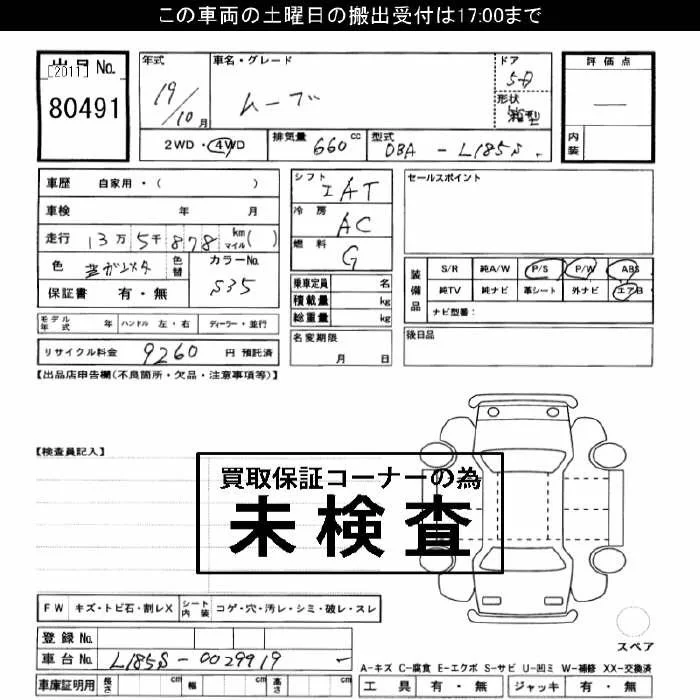 この車両の土曜日の搬出受付は17:00まで
出品No.
[2011]
80491
年式
19/10月
車名・グレード
ムーブ
ドア
5D
形状
箱型
評価点
—
内装
2WD・4WD
排気量 660 cc
型式 DBA - L185S
車歴 自家用・( )
車検 年 月
走行 13万5千878 km マイル( )
色
色替
カラーNo.
S35
保証書 有・無
シフト
IAT
冷房
AC
燃料
G
乗車定員 名
積載量 kg
総重量 kg
名変期限
月 日
セールスポイント
装備品
S/R 純A/W P/S P/W ABS
純TV 純ナビ 革シート 外ナビ エアB
ナビ型番:
後日品
モデル年式 年 ハンドル 左・右 ディーラー・並行
リサイクル料金 9260 円 預託済
【出品店申告欄(不良箇所・欠品・注意事項等)】
【検査員記入】
買取保証コーナーの為
未検査
FW キズ・トビ石・割レX シート内装 コゲ・穴・汚レ・シミ・破レ・スレ
登録No.
車台No. L185S-0029919
車庫証明用 長さ cm 幅 cm 高さ cm
スペア
A-キズ C-腐食 E-エクボ S-サビ U-凹ミ W-補修 XX-交換済
工具 有・無 ジャッキ 有・無